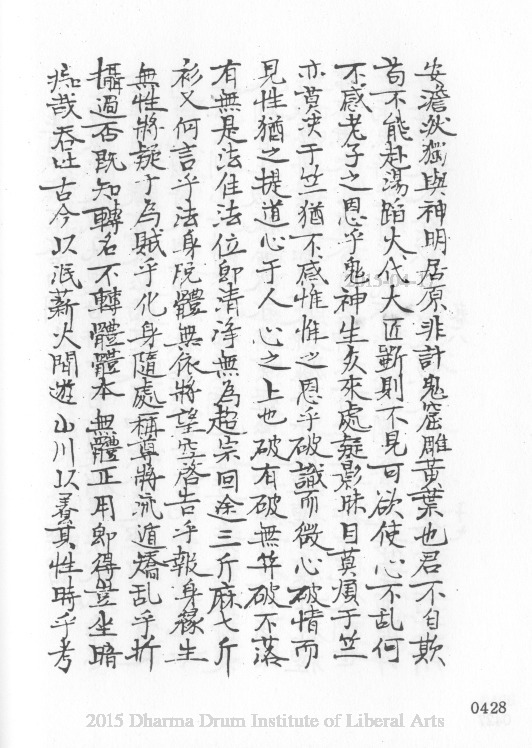 安澹泊獨與神明居原非計鬼窟雕黃葉也君不自欺
苟不能赴湯蹈火代大匠斵則不見可欲使心不乱何
不感老子之恩乎鬼神生友來處疑影昧目莫須于竺
亦莫決于竺猶不感惟惟之恩乎破識而微心破情而
見性猶之提道心于人心之上也破有破無笄破不落
有無是法住法位即清净無為超宗回途三斤麻七斤
衫又何言乎法身脫體無依將望空啓告乎報身緣生
無性將疑于為賊乎化身隨處稱尊將流遁矯乱乎折
攝過否既知轉名不轉體體本無體正用即得豈坐暗
痴哉吞吐古今以泯薪火間遊山川以畧其性時乎考
0428
2015 Dharma Drum Institute of Liberal Arts